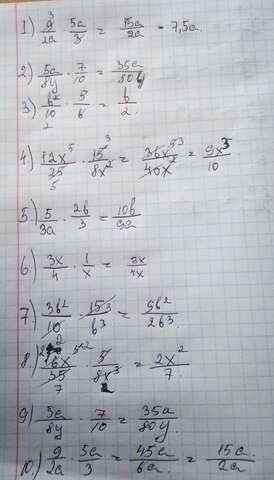 1) 9/2a · 5a/3 = 15a/2a = 7,5a.
2) 5a/8y · 7/10 = 35a/80y
3) b²/10 · 5/b = b/2.
4) 12x⁵/25 · 15/8x² = 36x⁵/40x² = 9x³/10
5.) 5/3a · 2b/3 = 10b/9a
6.) 3x/4 · 1/x = 3x/4x
7.) 3b²/10 · 15/b³ = 5b²/2b³.
8.) 16x⁵/35 · 5/8x³ = 2x²/7.
9) 5a/8y · 7/10 = 35a/80y.
10.) 9/2a · 5a/3 = 45a/6a = 15a/2a.